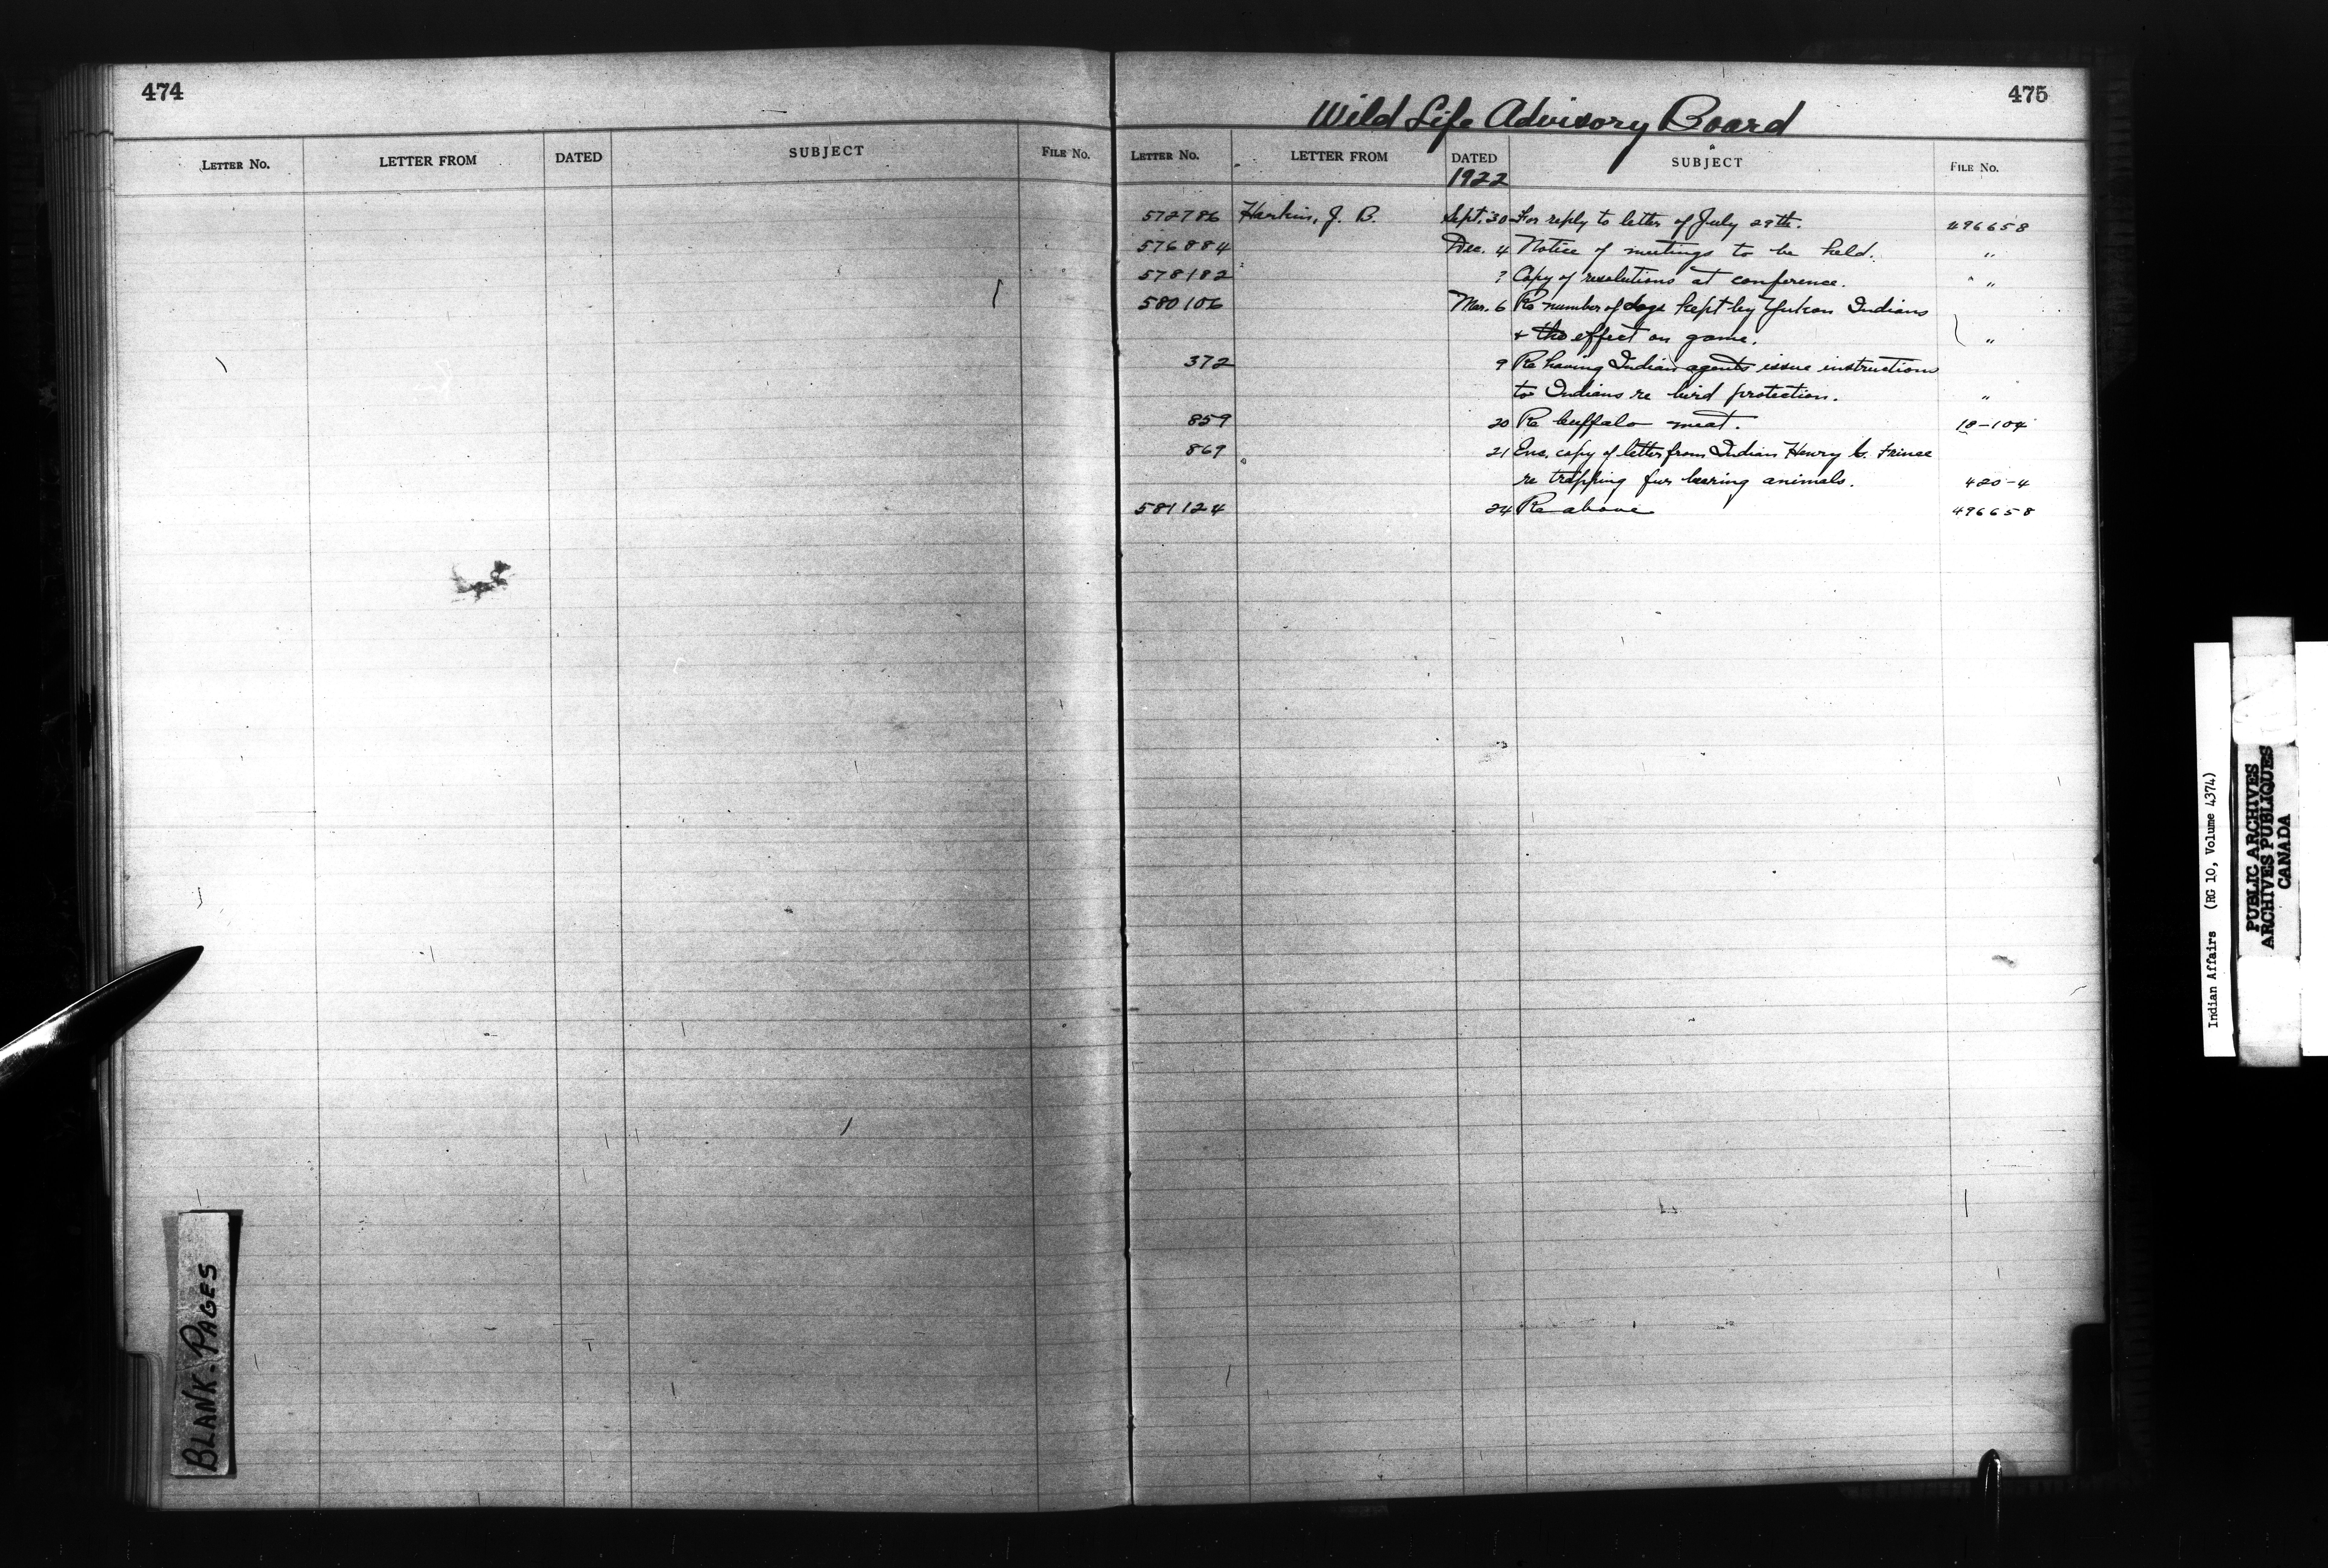 474
LETTER No. LETTER FROM DATED SUBJECT FILE No.
BLANK-PAGES
475
Wild Life Advisory Board
LETTER No. LETTER FROM DATED SUBJECT FILE No.
1922
572786 Harkin, J. B. Sept. 30 For reply to letter of July 29th. 496658
576884 Dec. 4 Notice of meetings to be held. "
578182 ? Copy of resolutions at conference. "
580106 Mar. 6 Re number of dogs kept by Yukon Indians
& the effect on game. "
372 9 Re having Indian agents issue instructions
to Indians re bird protection. "
859 20 Re buffalo meat. 18-104
869 21 Enc. copy of letter from Indian Henry C. Prince
re trapping fur bearing animals. 420-4
581124 24 Re above 496658
Indian Affairs (RG 10, Volume 4374)
PUBLIC ARCHIVES
ARCHIVES PUBLIQUES
CANADA